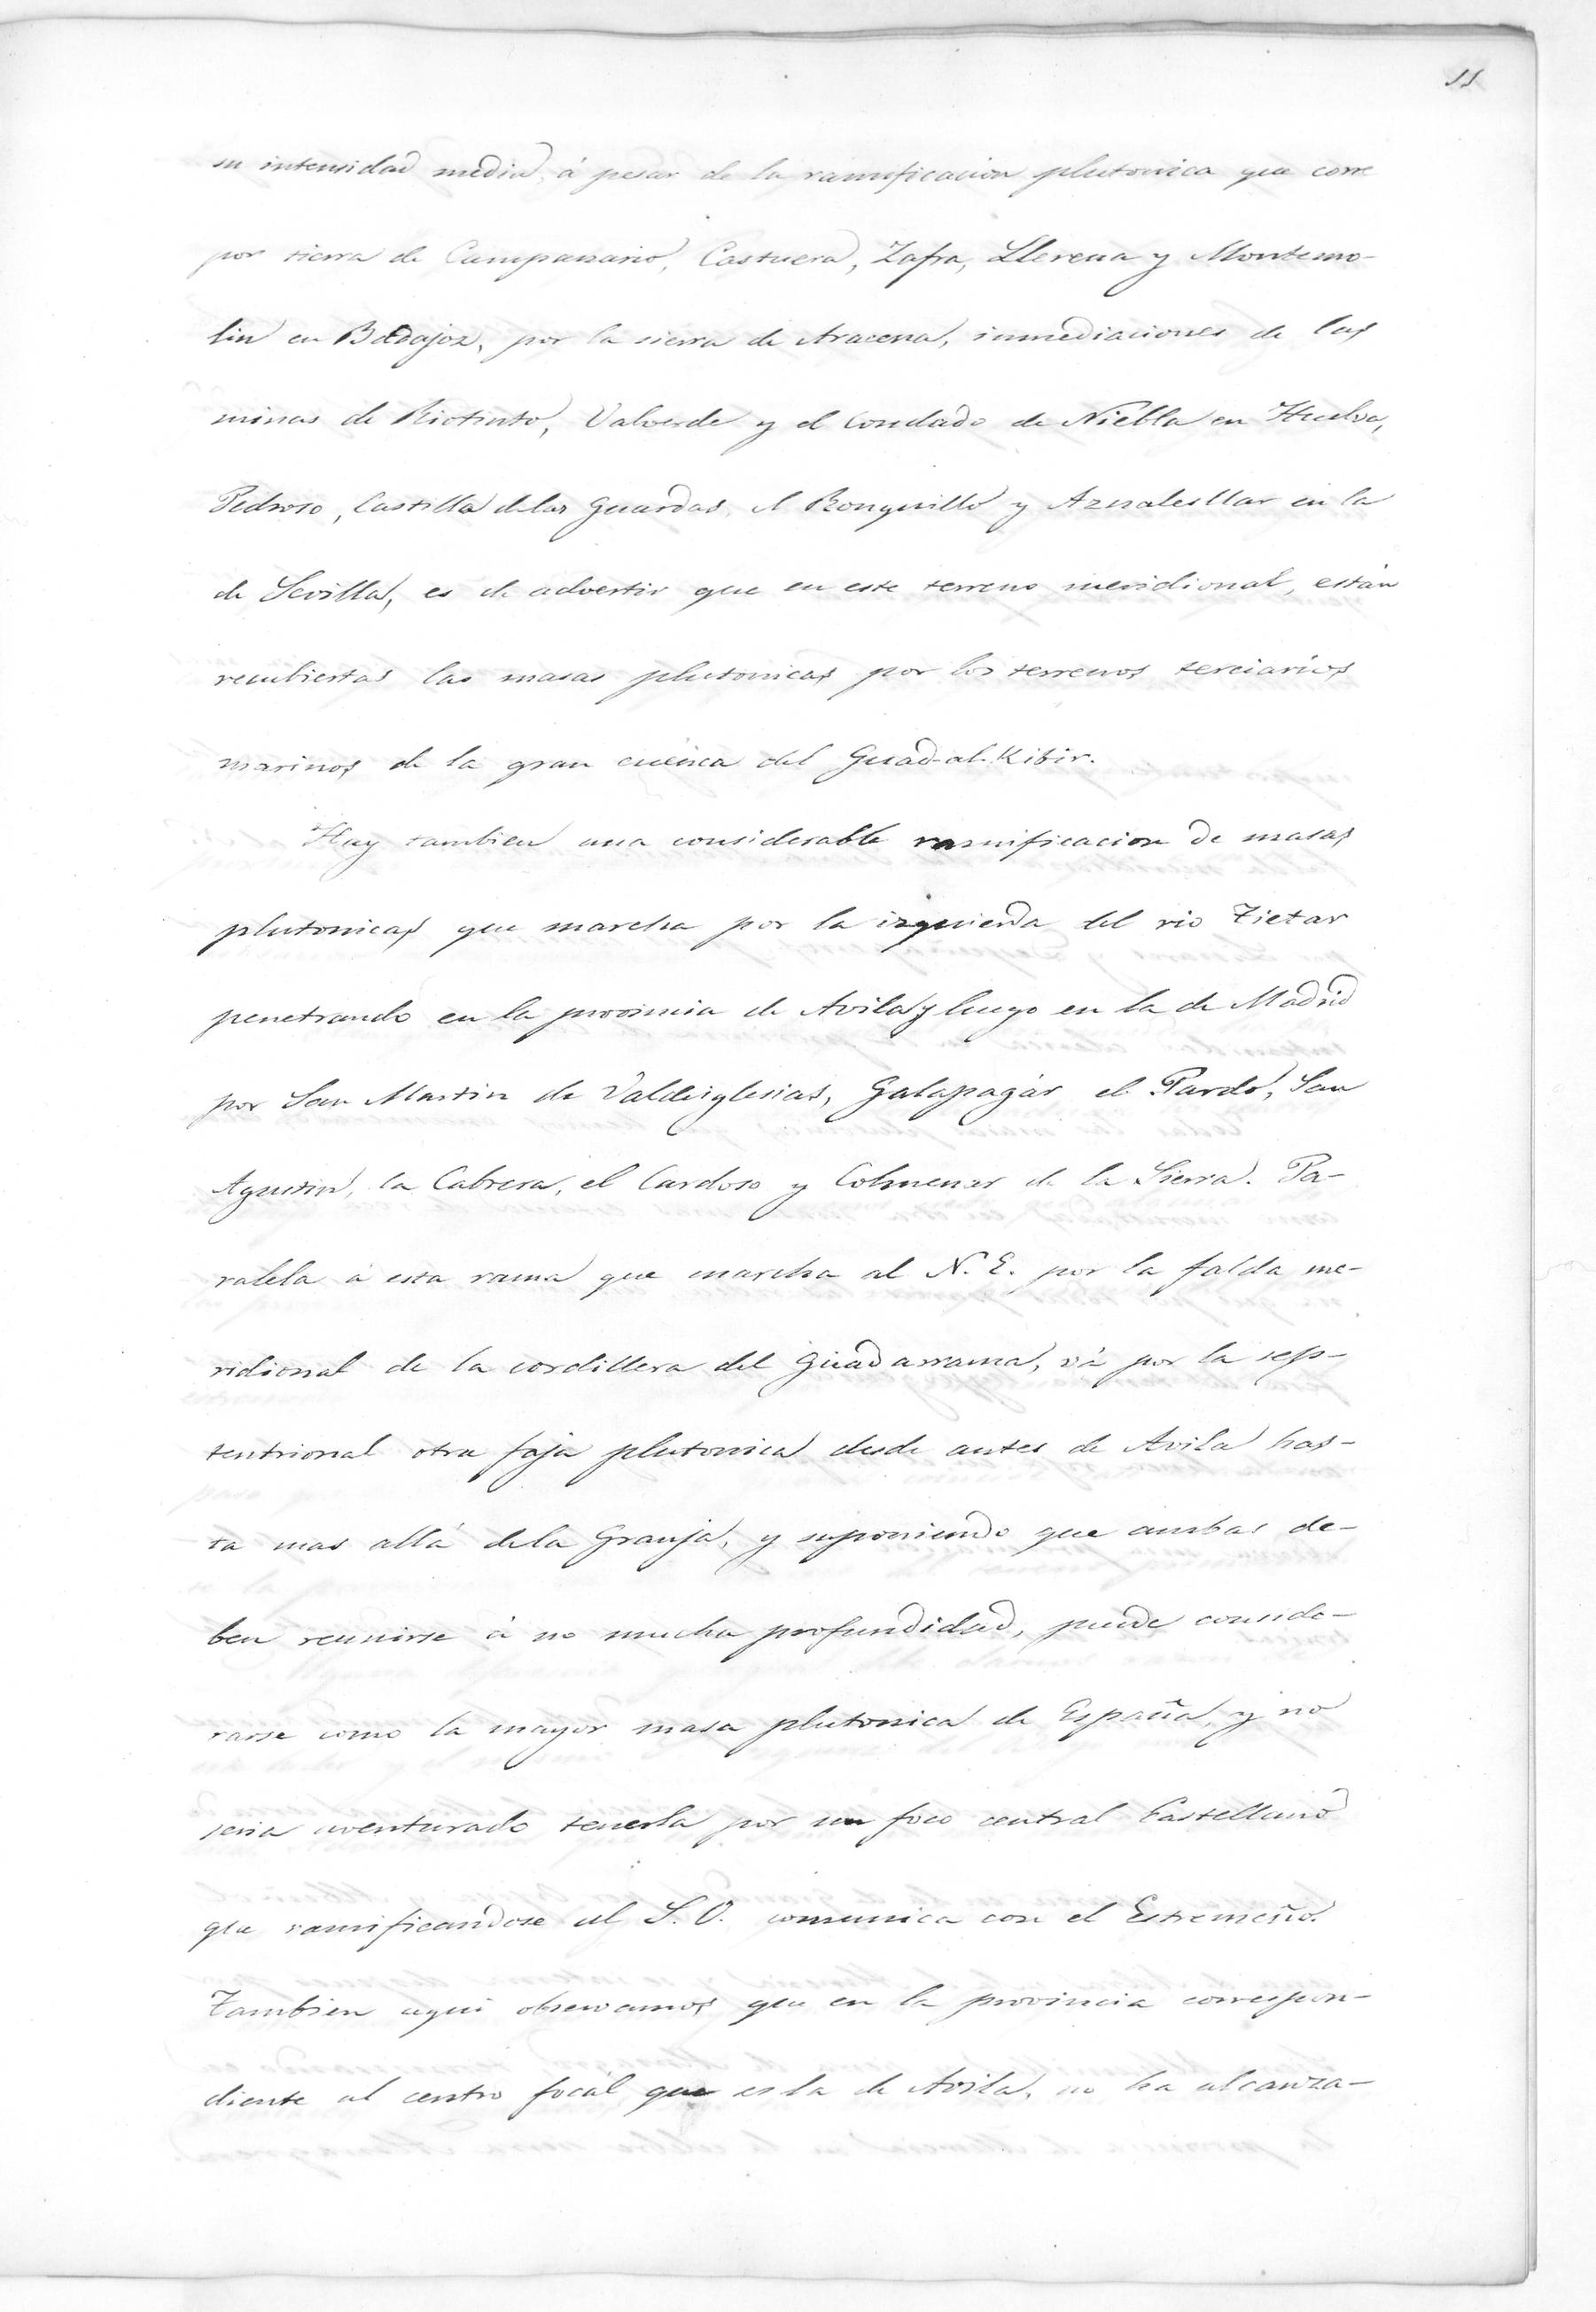 11
su intensidad media, á pesar de la ramificacion plutonica que corre
por tierra de Campanario, Castuera, Zafra, Llerena y Montemo-
lin en Badajoz, por la sierra de Aracena, inmediaciones de las
minas de Riotinto, Valverde y el Condado de Niebla en Huelva,
Pedroso, Castilla delas Guardas, el Ronquillo y Aznalcollar en la
de Sevilla, es de advertir que en este terreno meridional, están
recubiertas las masas plutonicas por los terrenos terciarios
marinos de la gran cuenca del Guad-al-Kibir.
Hay tambien una considerable ramificacion de masas
plutonicas que marcha por la izquierda del rio Tietar
penetrando en la provincia de Avila y luego en la de Madrid
por San Martin de Valdeiglesias, Galapagár el Pardo, San
Agustin, la Cabrera, el Cardoso y Colmenar de la Sierra. Pa-
ralela á esta rama que marcha al N.E. por la falda me-
ridional de la cordillera del Guadarrama, vá por la sep-
tentrional otra faja plutonica desde antes de Avila has-
ta mas allá dela Granja, y suponiendo que ambas de-
ben reunirse á no mucha profundidad, puede conside-
rarse como la mayor masa plutonica de España, y no
seria aventurado tenerla por un foco central Castellano
que ramificandose al S.O. comunica con el Estremeño.
Tambien aqui observamos que en la provincia correspon-
diente al centro focál que es la de Avila, no ha alcanza-